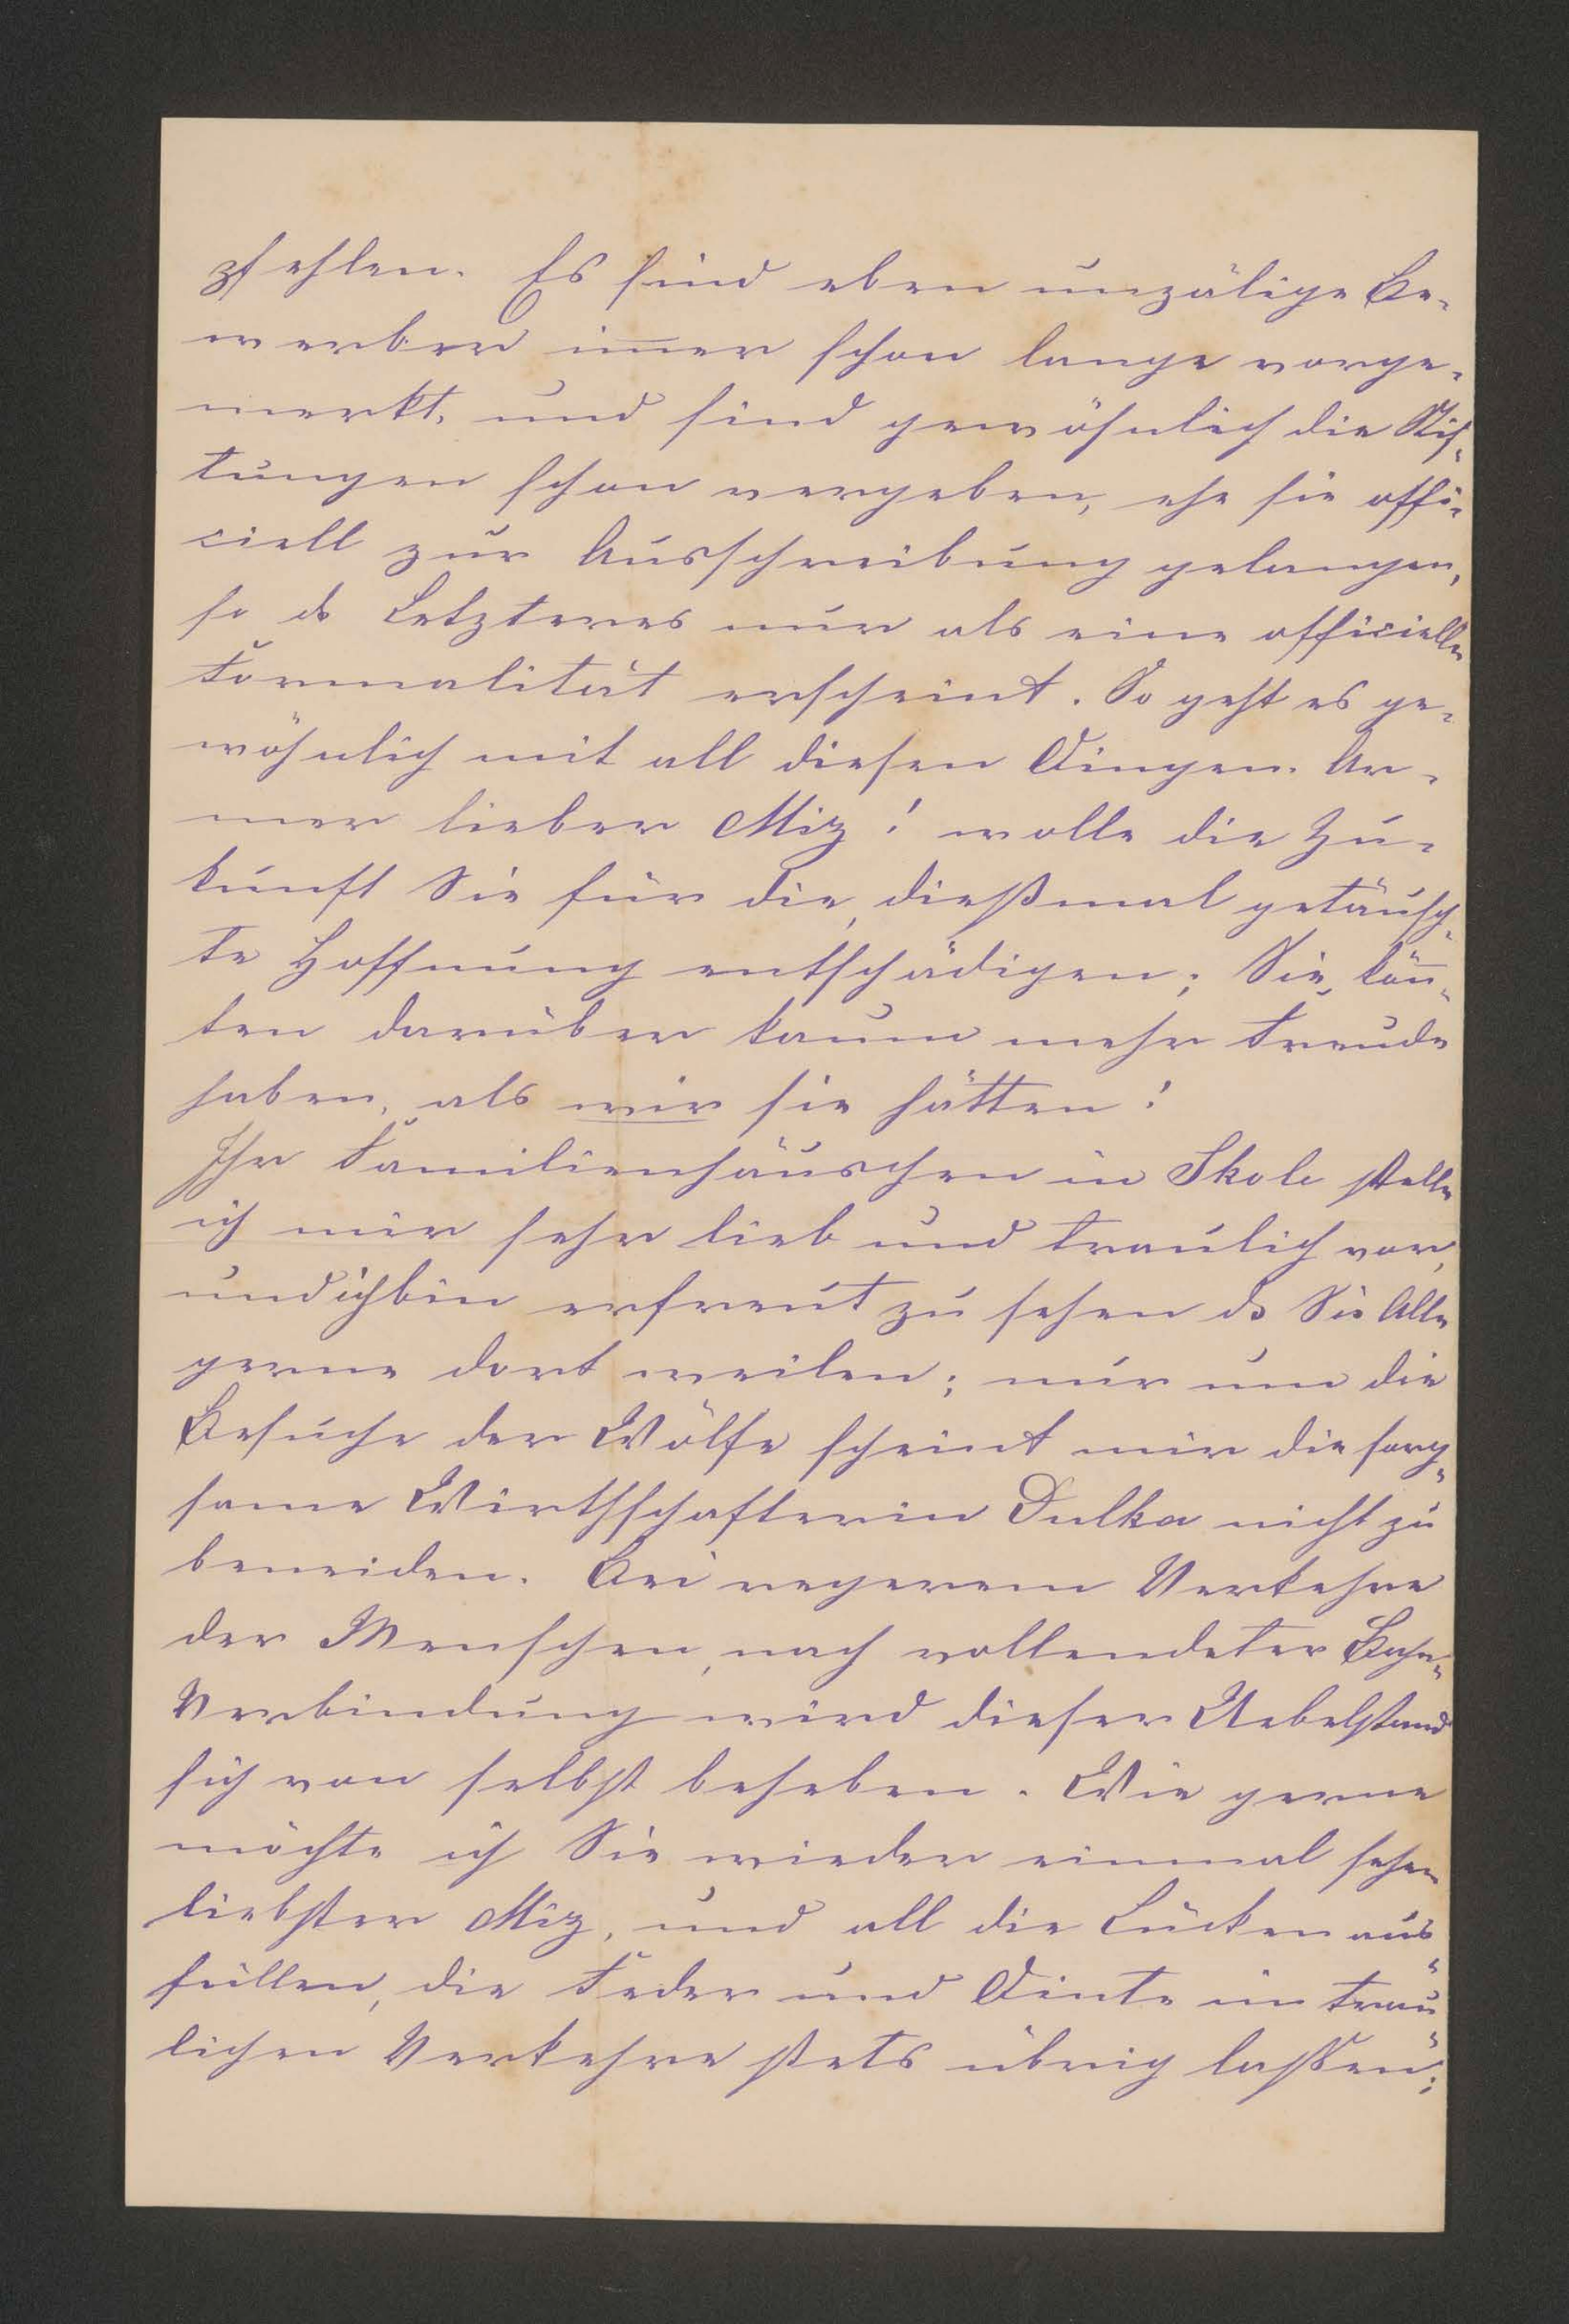 pfehlen. Es sind eben unzälige Be-
werber im̅er schon lange vorge-
merkt, und sind gewöhnlich die Stif-
tungen schon vergeben, ehe sie offi-
ciell zur Ausschreibung gelangen,
so ds Letzteres nur als eine officielle
Formalität erscheint. So geht es ge-
wöhnlich mit all diesen Dingen. Ar-
mer lieber Miz! wolle die Zu-
kunft Sie für die, dießmal getäusch-
te Hoffnung entschädigen; Sie, kön̅-
ten darüber kaum mehr Freude
haben, als wir sie hätten!
Ihr Familienhäuschen in Skole stelle
ich mir sehr lieb und traulich vor,
und ich bin erfreut zu sehen ds Sie Alle
gerne dort weilen; nur um die
Besuche der Wölfe scheint mir die sorg-
same Wirthschafterin Dulka nicht zu
beneiden. Bei regerem Verkehre
der Menschen, nach vollendeter Bahn-
Verbindung wird dieser Uebelstand
sich von selbst beheben. Wie gerne
möchte ich Sie wieder einmal sehen
liebster Miz, und all die Lücken aus-
füllen, die Feder und Dinte im trau-
lichen Verkehre stets übrig lassen;